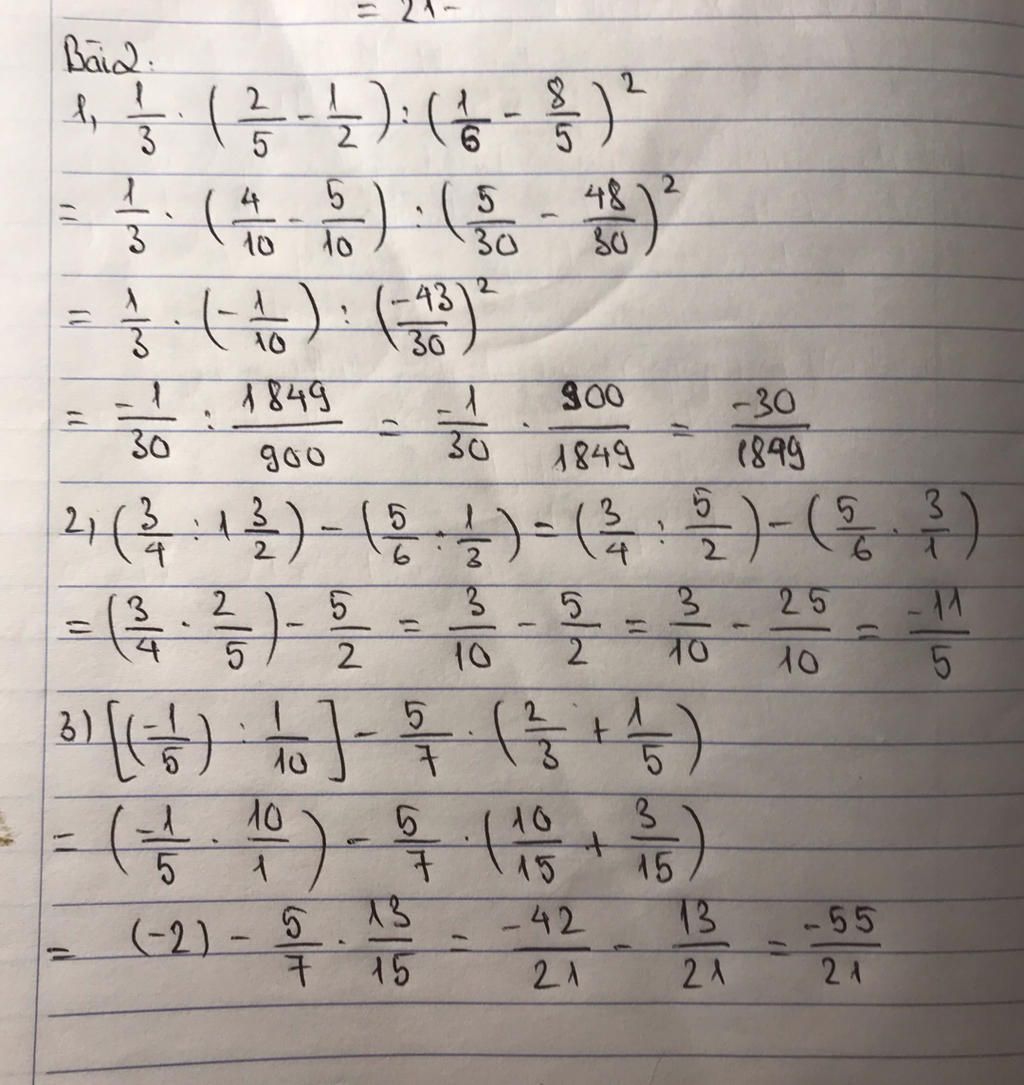 = 21-
Bài 2:
1, 1/3 . (2/5 - 1/2) : (1/6 - 8/5)²
= 1/3 . (4/10 - 5/10) : (5/30 - 48/30)²
= 1/3 . (-1/10) : (-43/30)²
= -1/30 : 1849/900 = -1/30 . 900/1849 = -30/1849
2, (3/4 : 1 3/2) - (5/6 : 1/3) = (3/4 : 5/2) - (5/6 . 3/1)
= (3/4 . 2/5) - 5/2 = 3/10 - 5/2 = 3/10 - 25/10 = -11/5
3) [(-1/5) : 1/10] - 5/7 . (2/3 + 1/5)
= (-1/5 . 10/1) - 5/7 . (10/15 + 3/15)
= (-2) - 5/7 . 13/15 = -42/21 - 13/21 = -55/21